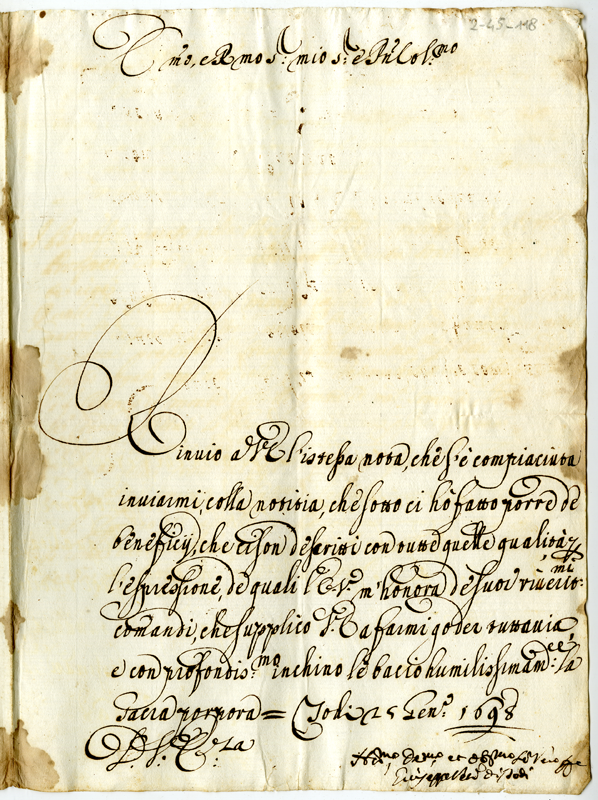 2-45-118
Em̃o, e Rmo Sr: mio Sr: e Pñ Colmo
Rinvio a V. E. l'istessa nota, che s'è compiaciuta
inviarmi, colla notitia, che sotto ci hò fatto porre de
beneficij, che ci son descritti con tutte quelle qualità, e
l'espressione, de quali l'E. V. m'honora de suoi riveritmi
comandi, che supplico V. E. a farmi goder tuttavia,
e con profondismo inchino le bacio humilissimamte: la
sacra porpora = Todi 25 Genro 1698
D. V. Emza
Humo Devmo et Obmo
Giuseppe di Todi